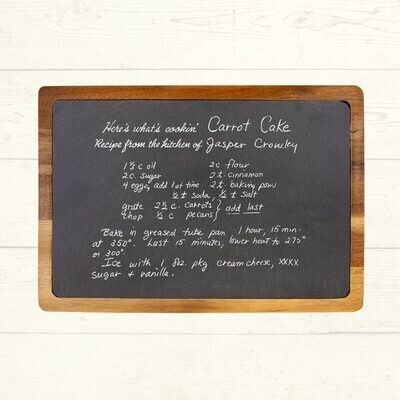 Here's what's cookin' Carrot Cake
Recipe from the kitchen of Jasper Crowley
1 ½ c oil 2 c flour
2 c. sugar 2 t. cinnamon
4 eggs, add 1 at time 2 t. baking pow
½ t soda, ½ t salt
grate 2 ½ c. carrots } add last
chop ½ c pecans
Bake in greased tube pan, 1 hour, 15 min.
at 350°. Last 15 minutes, lower heat to 275°
or 300°.
Ice with 1 8 oz. pkg cream cheese, XXXX
sugar + vanilla.